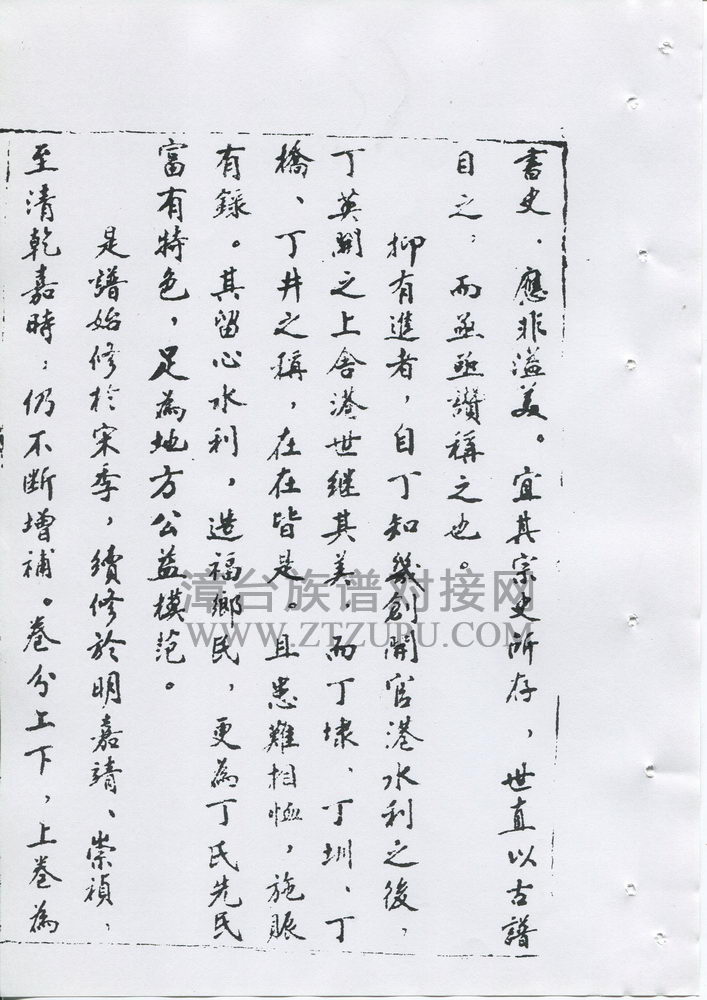 書史，應非溢美。宜其宗史所存，世直以古譜
目之，而亟亟讚稱之也。
抑有進者，自丁知幾創開官港水利之後，
丁英開之上舍港世继其美，而丁埭、丁圳、丁
橋、丁井之稱，在在皆是。且患難相恤，施賑
有錄。其留心水利，造福鄉民，更為丁氏先民
富有特色，足為地方公益模范。
是譜始修於宋季，續修於明嘉靖、崇禎，
至清乾嘉時，仍不斷增補。卷分上下，上卷為
漳台族谱对接网
WWW.ZTZUPU.COM